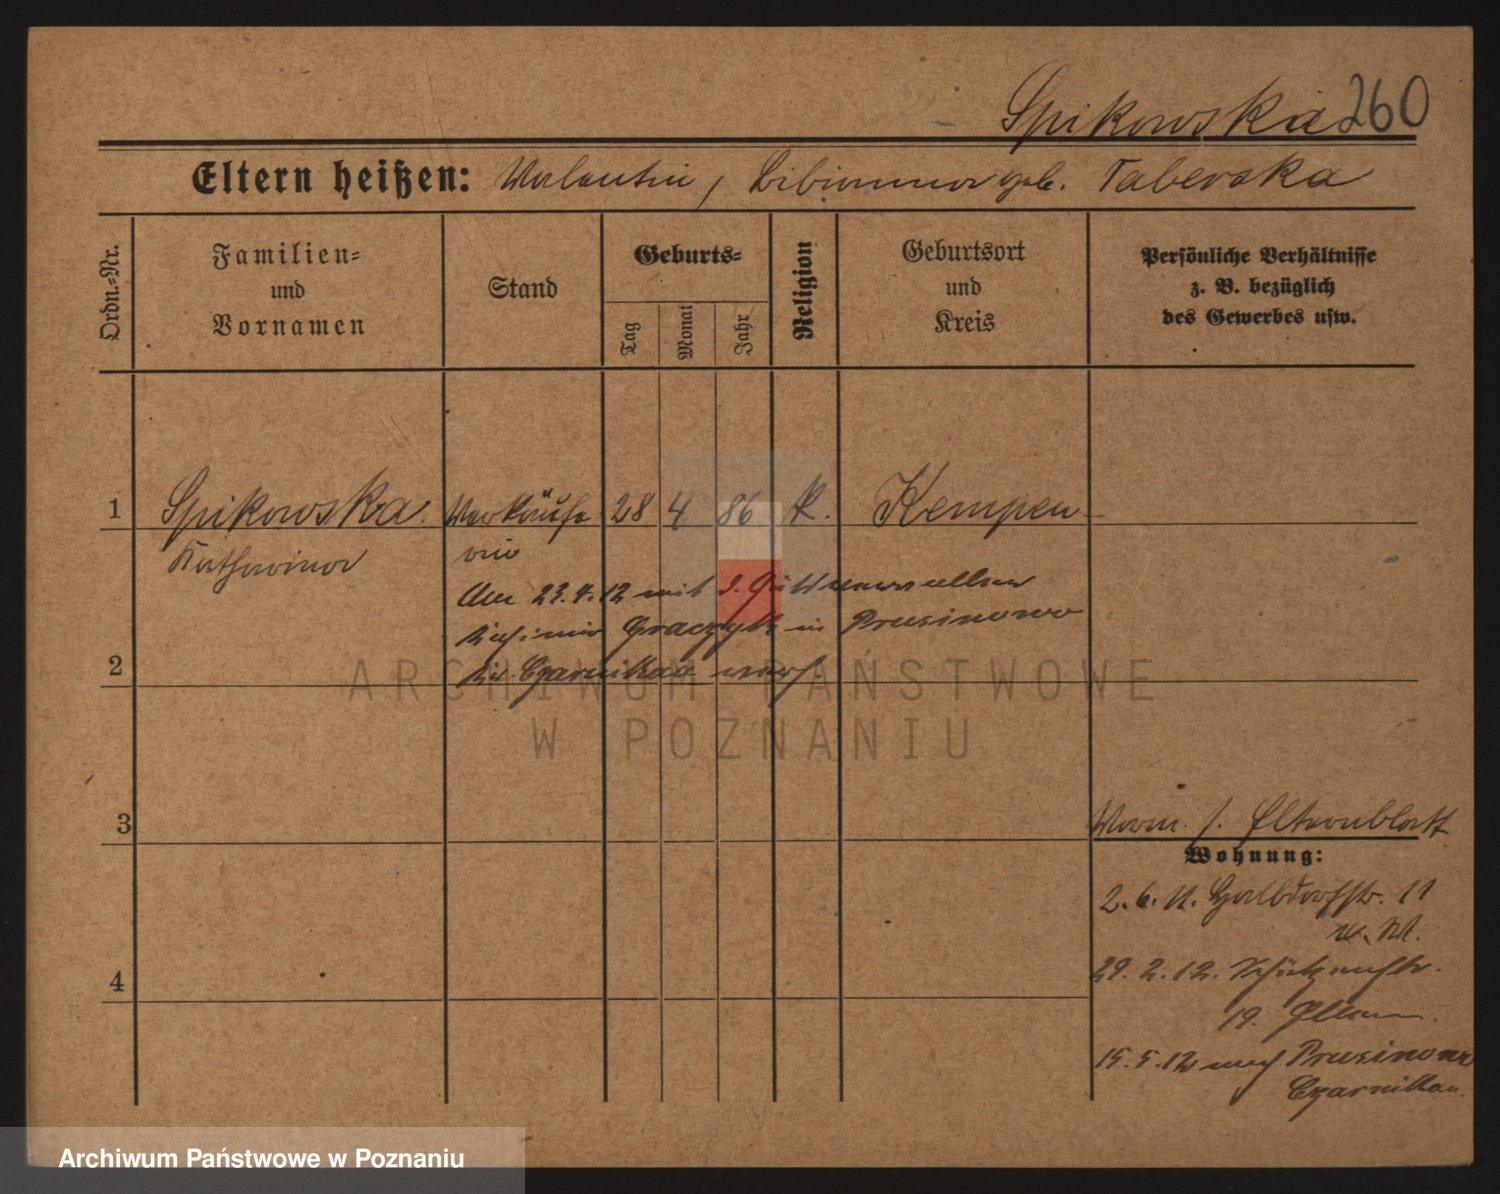 Spikowska 260
Eltern heißen: Valentin, Bibianna geb. Taberska
Ordn.-Nr.
Familien-
und
Vornamen
Stand
Geburts-
Tag
Monat
Jahr
Religion
Geburtsort
und
Kreis
Persönliche Verhältnisse
z. B. bezüglich
des Gewerbes usw.
1 Spikowska Verkäufe 28 4 86 k. Kempen
Katharina rin
Am 23.4.12 mit d.
Kasimir Graczyk in Prusinowo
2 Kr. Czarnikau verh.
ARCHIWUM PAŃSTWOWE
W POZNANIU
3 Vorm. s. Elternblatt
Wohnung:
2.6.11. 11
4 29.2.12. Schützenstr.
19. Eltern.
15.5.12 nach Prusinowo
Czarnikau.
Archiwum Państwowe w Poznaniu